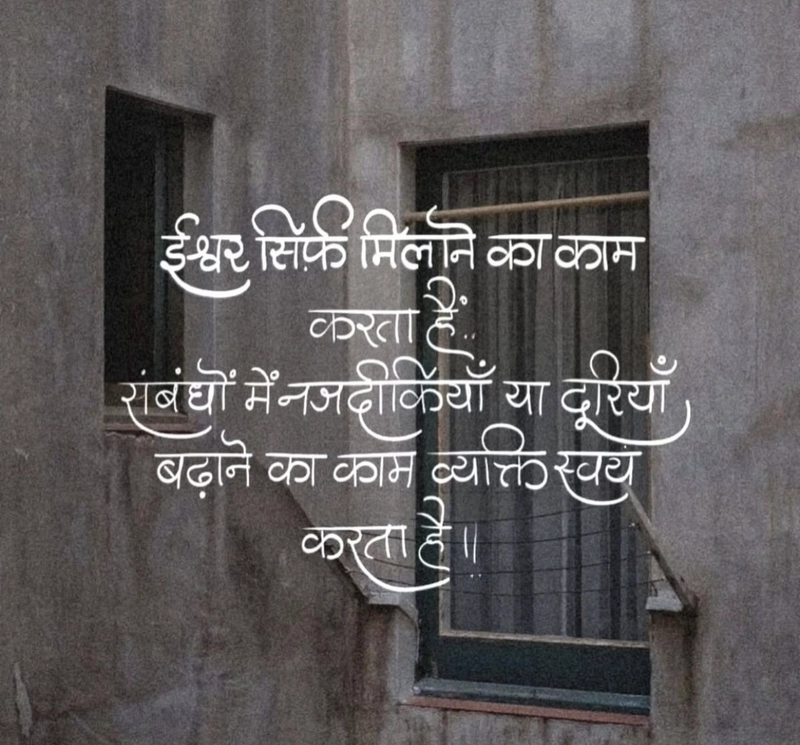 ईश्वर सिर्फ़ मिलाने का काम
करता हैं..
संबंधों में नजदीकियाँ या दूरियाँ
बढ़ाने का काम व्यक्ति स्वयं
करता है॥